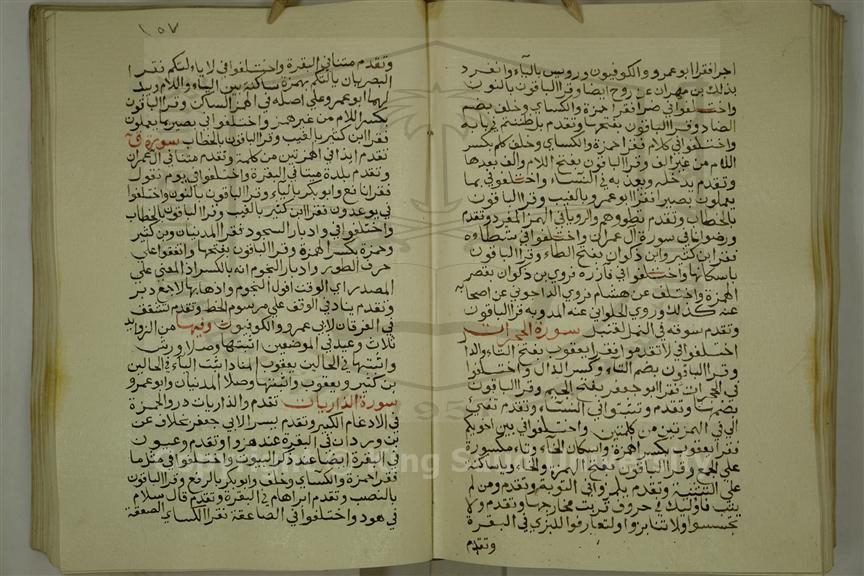 اجرا فقرا ابو عمرو والكوفيون ورويس بالياء وانفرد
بذلك بن مهران عن روح ايضا وقرا الباقون بالنون
واختلفوا في ضرا فقرا حمزة والكساي وخلف بضم
الضاد وقرا الباقون بفتحها وتقدم بل ظننتم في بابه
واختلفوا في كلام فقرا حمزة والكساي وخلف كلم بكسر
اللام من غير الف وقرا الباقون بفتح اللام والف بعدها
وتقدم يدخله ويعذبه في النساء واختلفوا في بما
يعملون بصيرا فقرا ابو عمرو بالغيب وقرا الباقون
بالخطاب وتقدم تطووهم والرويا في الهمز المفرد وتقدم
ورضوانا في سورة ال عمران واختلفوا في شطاه
فقرا بن كثير وابن ذكوان بفتح الطاء وقرا الباقون
باسكانها واختلفوا في فازره فروي بن ذكوان بقصر
الهمزة واختلف عن هشام فروي الداجوني عن اصحابه
عنه كذلك وروي الحلواني عنه المد وبه قرا الباقون
وتقدم سوقه في النمل لقنبل سورة الحجرات
اختلفوا في لا تقدموا فقرا يعقوب بفتح التاء والدال
وقرا الباقون بضم التاء وكسر الدال واختلفوا
في الحجرات فقرا ابو جعفر بفتح الجيم وقرا الباقون
بضمها وتقدم فتبينوا في النساء وتقدم تفيء
الى في الهمزتين من كلمتين واختلفوا في بين اخويكم
فقرا يعقوب بكسر الهمزة واسكان الخاء وتاء مكسورة
على الجمع وقرا الباقون بفتح الهمزة والخاء وياء ساكنة
على التثنية وتقدم تلمزوا في التوبة وتقدم ومن لم
يتب فاوليك في حروف قربت مخارجها وتقدم ولا
تجسسوا ولا تنابزوا ولتعارفوا للبزي في البقرة
وتقدم
١٥٧
وتقدم ميتا في البقرة واختلفوا في لا يالتكم فقرا
البصريان يالتكم بهمزة ساكنة بين الياء واللام ويبد
لها ابو عمرو على اصله في الهمز الساكن وقرا الباقون
بكسر اللام من غير همز واختلفوا في بصير بما يعملون
فقرا ابن كثير بالغيب وقرا الباقون بالخطاب سورة ق
تقدم ايذا في الهمزتين من كلمة وتقدم متنا في ال عمران
وتقدم بلدة ميتا في البقرة واختلفوا في يوم نقول
فقرا نافع وابو بكر بالياء وقرا الباقون بالنون واختلفوا
في يوعدون فقرا ابن كثير بالغيب وقرا الباقون بالخطاب
واختلفوا في وادبار السجود فقرا المدنيان وبن كثير
وحمزة بكسر الهمزة وقرا الباقون بفتحها واتفقوا على
حرف الطور وادبار النجوم انه بالكسر اذ المعني علي
المصدر اي وقت افول النجوم وذهابها لا جمع دبر
وتقدم يناد في الوقف علي مرسوم الخط وتقدم تشقق
في الفرقان لابي عمرو والكوفيون وفيها من الزوايد
ثلاث وعيد في الموضعين اثبتها وصلا ورش
واثبتها في الحالين يعقوب المناد اثبت الياء في الحالين
بن كثير ويعقوب واثبتها وصلا المدنيان وابو عمرو
سورة الذاريات تقدم والذاريات ذروا لحمزة
في الادغام الكبير وتقدم يسرا لابي جعفر بخلاف عن
بن وردان في البقرة عند هزوا وتقدم وعيون
في البقرة ايضا عند ذكر البيوت واختلفوا في مثل ما
فقرا حمزة والكساي وخلف وابو بكر بالرفع وقرا الباقون
بالنصب وتقدم ابراهام في البقرة وتقدم قال سلام
في هود واختلفوا في الصاعقة فقرا الكساي الصعقة